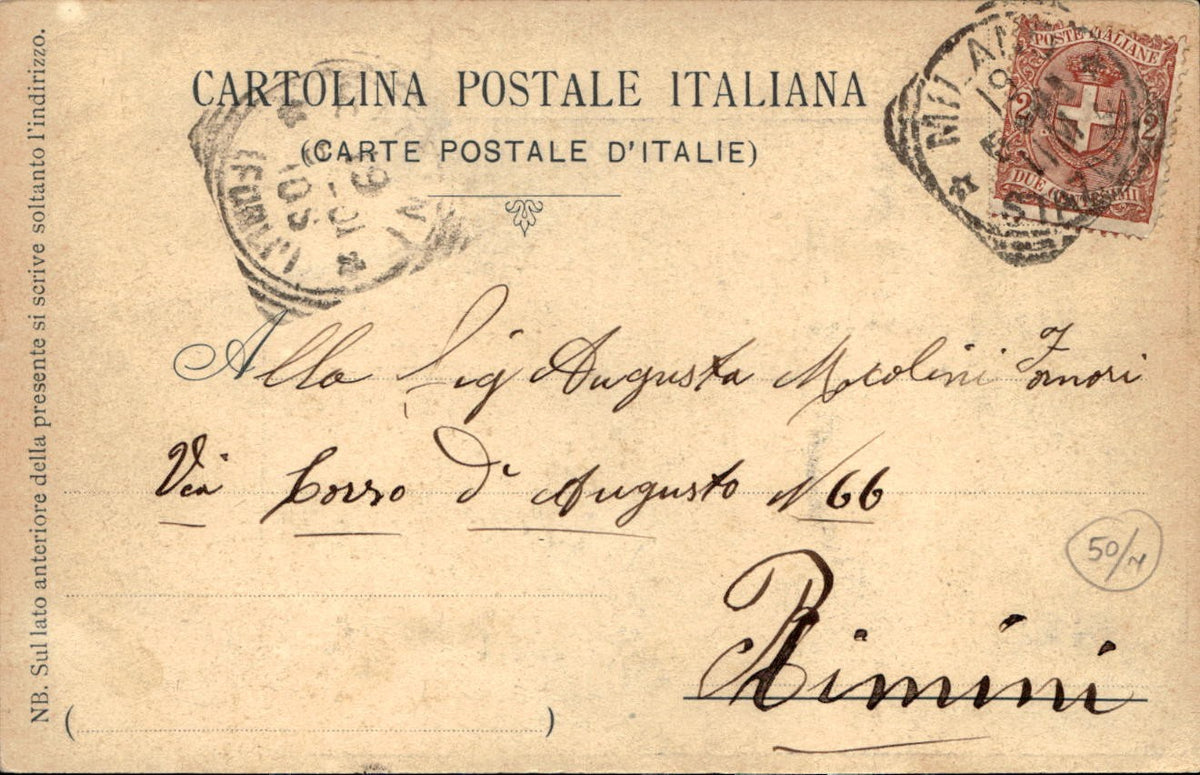 CARTOLINA POSTALE ITALIANA
(CARTE POSTALE D'ITALIE)
POSTE ITALIANE
2 2
DUE CENTESIMI
MILANO
(FORLI)
Alla Sig Augusta
Via Corso d'Augusto N 66
Rimini
50/N
NB. Sul lato anteriore della presente si scrive soltanto l'indirizzo.